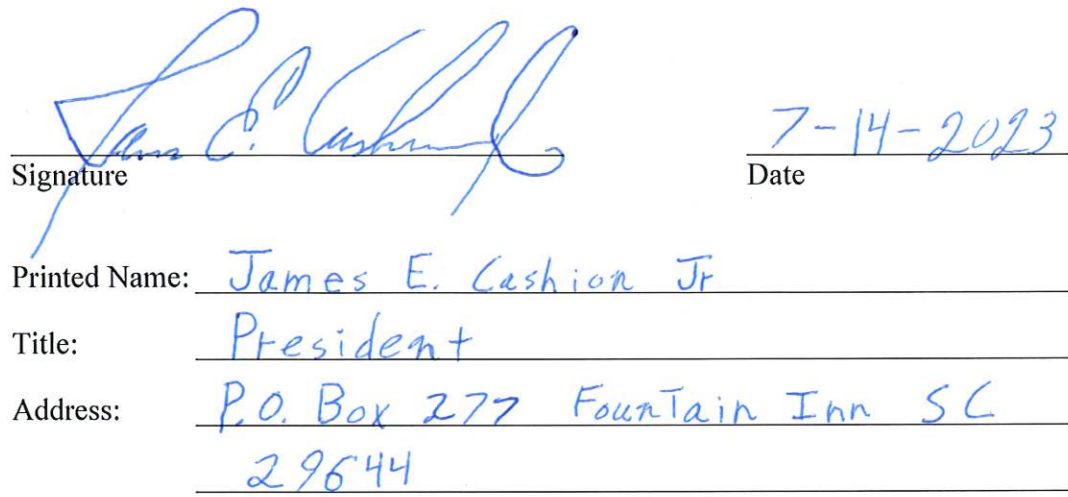 James E. Cashion Jr 7-14-2023
Signature Date
Printed Name: James E. Cashion Jr
Title: President
Address: P.O. Box 277 Fountain Inn SC
29644